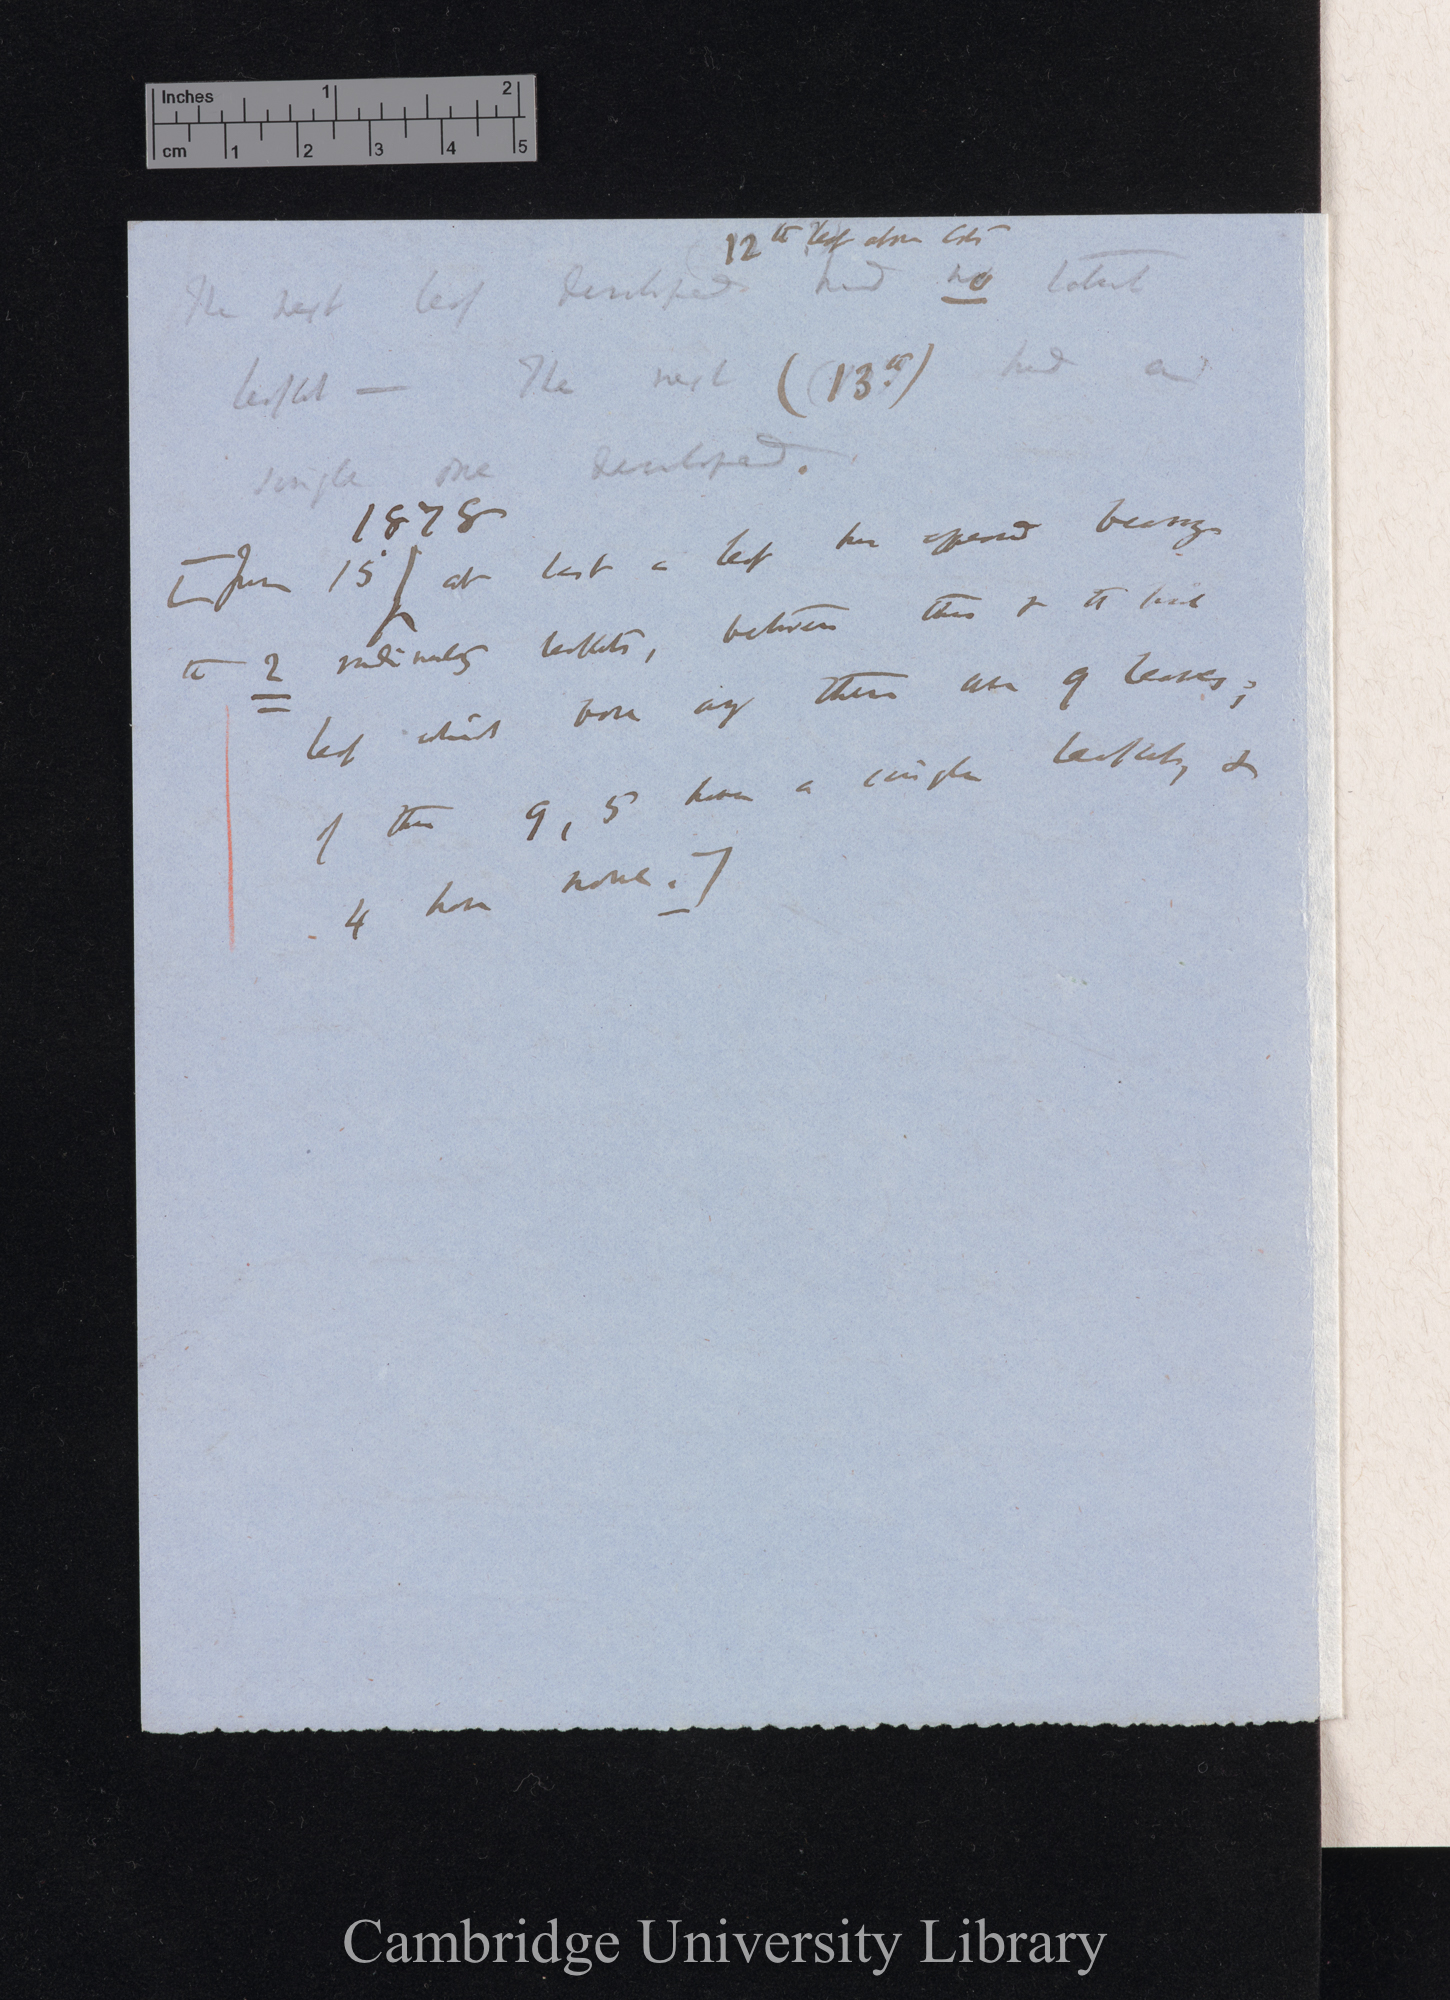 Inches 1 2
cm 1 2 3 4 5
12th leaf above Cots
The next leaf developed had no lateral
leaflet — The next (13th) had a
single one developed.
1878
[June 15) at last a leaf has opened bearing
the 2 rudimentary leaflets, between this & the last
leaf which bore any there are 9 leaves;
of the 9, 5 have a single leaflet, &
4 have none.]
Cambridge University Library